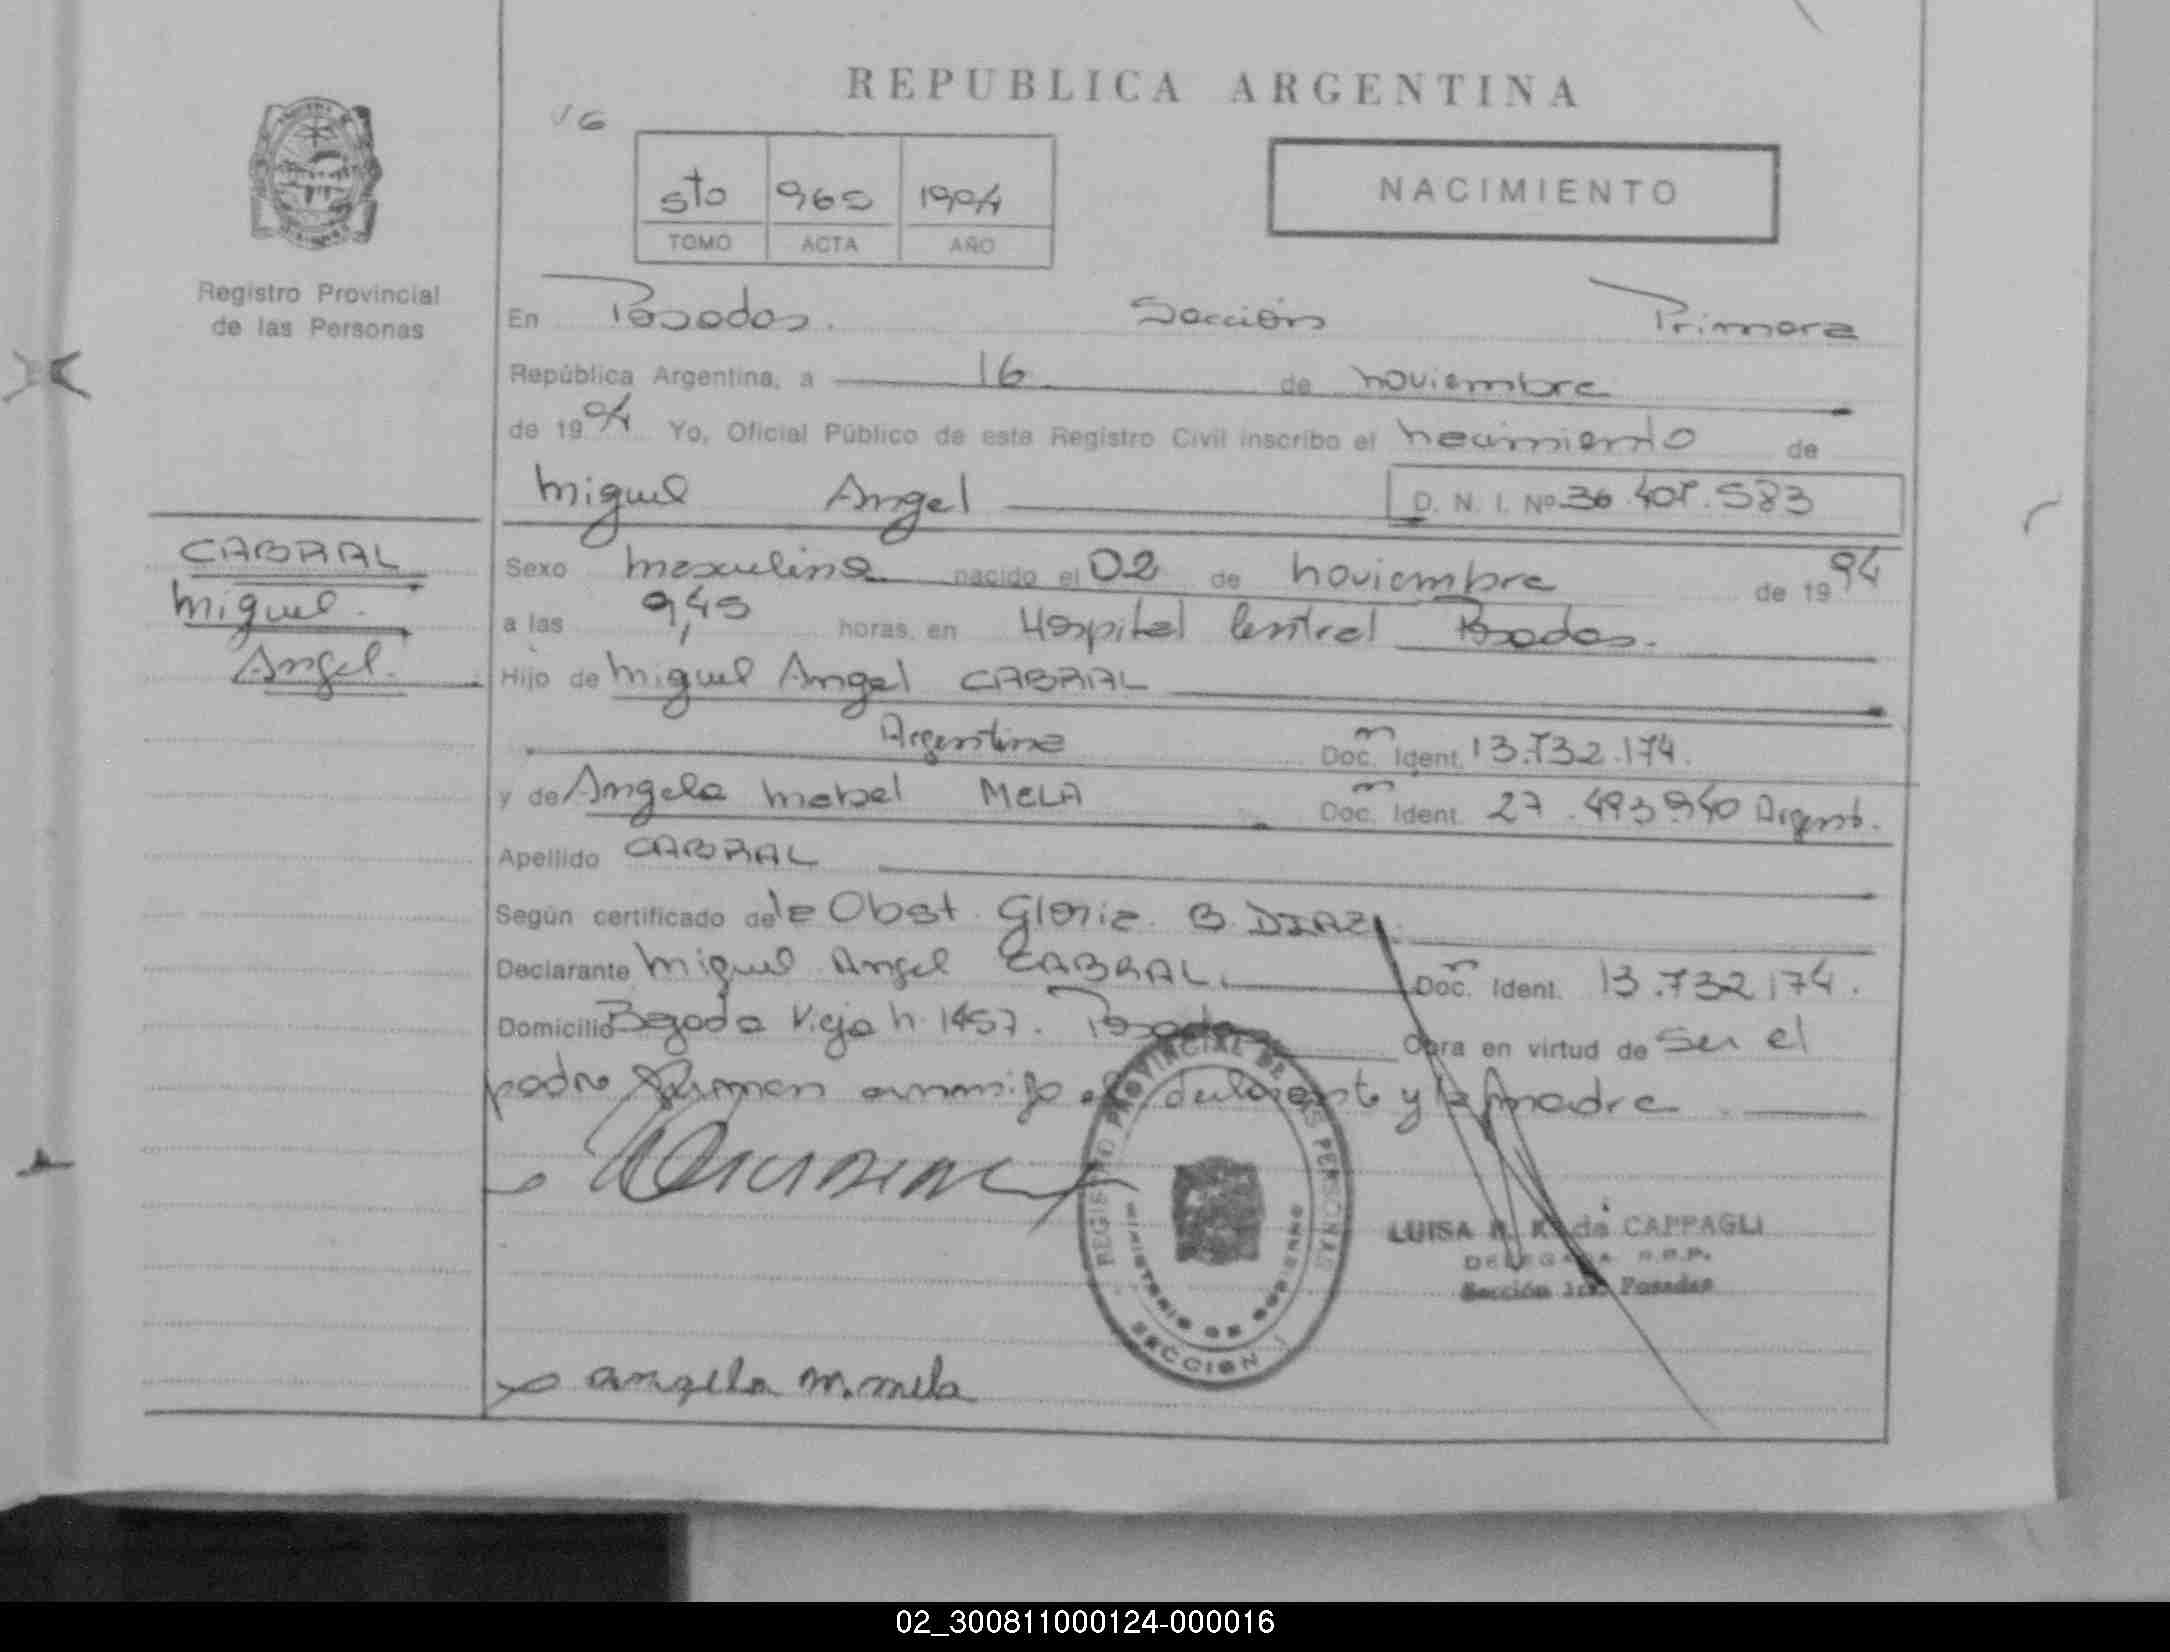 REPUBLICA ARGENTINA
16
5to 965 1994
TOMO ACTA AÑO
NACIMIENTO
Registro Provincial
de las Personas
En Posadas. Sección Primera
República Argentina, a 16 de noviembre
de 1994 Yo, Oficial Público de este Registro Civil inscribo el nacimiento de
Miguel Angel D. N. I. Nº 36.407.583
CABRAL
Miguel.
Angel.
Sexo masculino nacido el 02 de noviembre de 1994
a las 9,45 horas, en Hospital Central Posadas.
Hijo de Miguel Angel CABRAL
Argentina Doc. Ident. 13.732.174.
y de Angela Mabel MELA Doc. Ident. 27.493.940 Argent.
Apellido CABRAL
Según certificado de la Obst. Gloria B. DIAZ
Declarante Miguel Angel CABRAL. Doc. Ident. 13.732.174.
Domicilio Bajada Vieja n. 1457. Posadas Obra en virtud de ser el
padre. Firman conmigo el declarante y la madre
REGISTRO PROVINCIAL DE LAS PERSONAS
MINISTERIO DE GOBIERNO
SECCION 1
LUISA K. de CAPPAGLI
DELEGADA R.P.P.
Sección 1ra. Posadas
angela m. mela
02_300811000124-000016